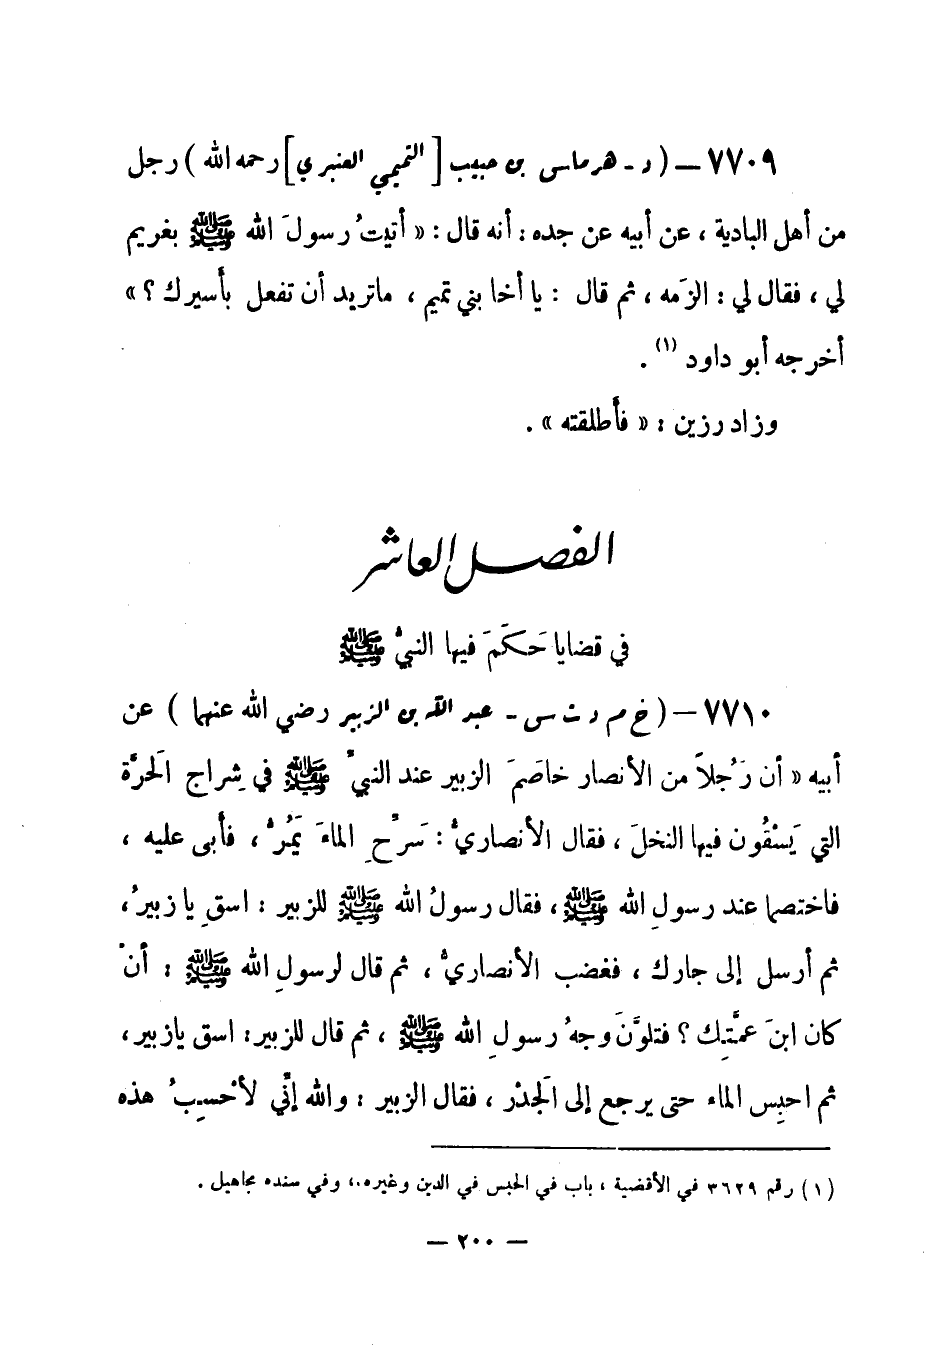 ٧٧٠٩ – ( د - هرماس بن حبيب [ التميمي العنبري ] رحمه الله ) رجل
من أهل البادية ، عن أبيه عن جده : أنه قال : « أتيتُ رسولَ الله ﷺ بغريم
لي ، فقال لي : الزَمه ، ثم قال : يا أخا بني تميم ، ماتريد أن تفعل بأسيرك ؟ »
أخرجه أبو داود (١) .
وزاد رزين : « فأطلقته » .
الفصل العاشر
في قضايا حَكَمَ فيها النبيُّ ﷺ
٧٧١٠ – ( خ م د ت س - عبد الله بن الزبير رضي الله عنهما ) عن
أبيه « أن رَجُلاً من الأنصار خاصَمَ الزبير عند النبيِّ ﷺ في شِراج الحَرَّة
التي يَسْقُون فيها النخلَ ، فقال الأنصاريُّ : سَرِّحِ الماءَ يَمُرُّ ، فأبى عليه ،
فاختصما عند رسولِ الله ﷺ ، فقال رسولُ الله ﷺ للزبير : اسقِ يا زبيرُ ،
ثم أرسل إلى جارك ، فغضب الأنصاريُّ ، ثم قال لرسولِ الله ﷺ : أنْ
كان ابنَ عمَّتِك ؟ فتلوَّنَ وجهُ رسولِ الله ﷺ ، ثم قال للزبير : اسق يازبير ،
ثم احبِس الماء حتى يرجع إلى الجَدْر ، فقال الزبير : والله إنِّي لأحْسِبُ هذه
(١) رقم ٣٦٢٩ في الأقضية ، باب في الحبس في الدين وغيره ، وفي سنده مجاهيل .
— ٢٠٠ —